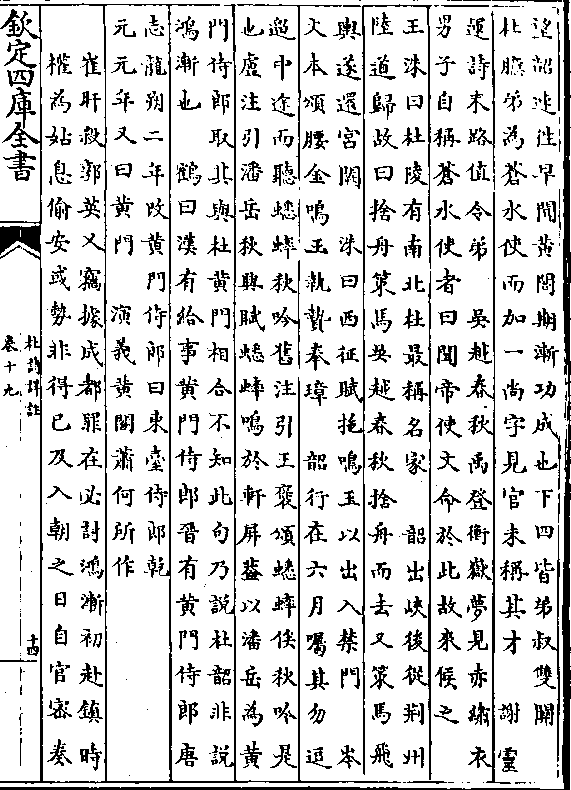 望韶速往早間黄閣期漸功成也下四皆弟叔雙關
杜贍弟為蒼水使而加一尚字見官未稱其才　謝靈
運詩末路值令弟　吳越春秋禹登衡嶽夢見赤繡衣
男子自稱蒼水使者曰聞帝使文命於此故來候之
王洙曰杜陵有南北杜最稱名家　韶出峽後從荆州
陸道歸故曰捨舟策馬吳越春秋捨舟而去又策馬飛
輿遂還宮闕　洙曰西征賦拖鳴玉以出入禁門　岑
文本頌腰金鳴玉執贄奉璋　韶行在六月囑其勿逗
遛中途而聽蟋蟀秋吟舊注引王褒頌蟋蟀俟秋吟是
也盧注引潘岳秋興賦蟋蟀鳴於軒屏蓋以潘岳為黄
門侍郎取其與杜黄門相合不知此句乃説杜韶非説
鴻漸也　鶴曰漢有給事黄門侍郎晉有黄門侍郎唐
志龍朔二年改黄門侍郎曰東臺侍郎乾
元元年又曰黄門　演義黄閣蕭何所作
崔旰殺郭英乂竊據成都罪在必討鴻漸初赴鎮時
權為姑息偷安或勢非得已及入朝之日自宜密奏
欽定四庫全書
杜詩詳註
卷十九
十四